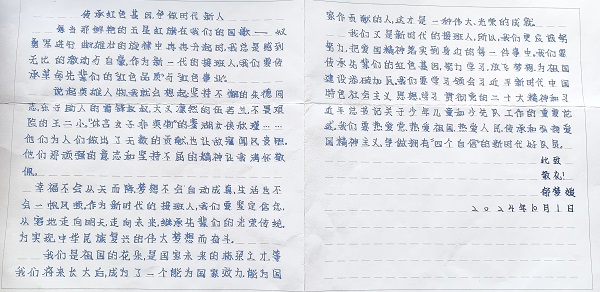 传承红色基因,争做时代新人
每当那鲜艳的五星红旗在我们的国歌——《义
勇军进行曲》雄壮的旋律中冉冉升起时,我总是感到
无比的激动与自豪,作为新一代的接班人,我们要传
承革命先辈们的红色品质与红色事业。
说起英雄人物,我就会想起坚持不懈的
志,乐于助人的雷锋叔叔,大义凛然的伍若兰,不畏艰
险的王二小,"休言女子非英物"的鉴湖女侠秋瑾……
他们为人们做出了无数的贡献,也让敌闻风丧胆,
他们那顽强的意志和坚持不屈的精神让我满怀敬
佩。
幸福不会从天而降,梦想不会自动成真,生活也不
会一帆风顺,作为新时代的接班人,我们要坚定信念,
从容地走向明天,走向未来,继承先辈们的光荣传统,
为实现中华民族复兴的伟大梦想而奋斗。
我们是祖国的花朵,是国家未来的栋梁之才,等
我们将来长大后,成为了一个能为国家效力,能为国
家作贡献的人,这才是一种伟大、光荣的成就。
我们又是新时代的接班人,所以,我们更应该努
努力,把爱国精神落实到身边的每一件事中,我们要
传承先辈们的红色基因,努力学习,放飞梦想,为祖国
建设添砖加瓦,我们要学习领会习近平新时代中国
特色社会主义思想,学习贯彻党的二十大精神和习
近平总书记关于少年儿童和少先队工作的重要论
述,我们要热爱党,热爱祖国,热爱人民,传承和弘扬爱
国精神主义,争做拥有"四个自信"的新时代好队员。
此致
敬礼!
2024年10月1日